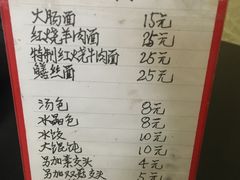 大肠面 15元
红烧羊肉面 25元
特制红烧牛肉面 25元
鳝丝面 25元
汤包 8元
水晶包 8元
水饺 10元
大馄饨 10元
另加素交头 4元
另加双菇交头 5元